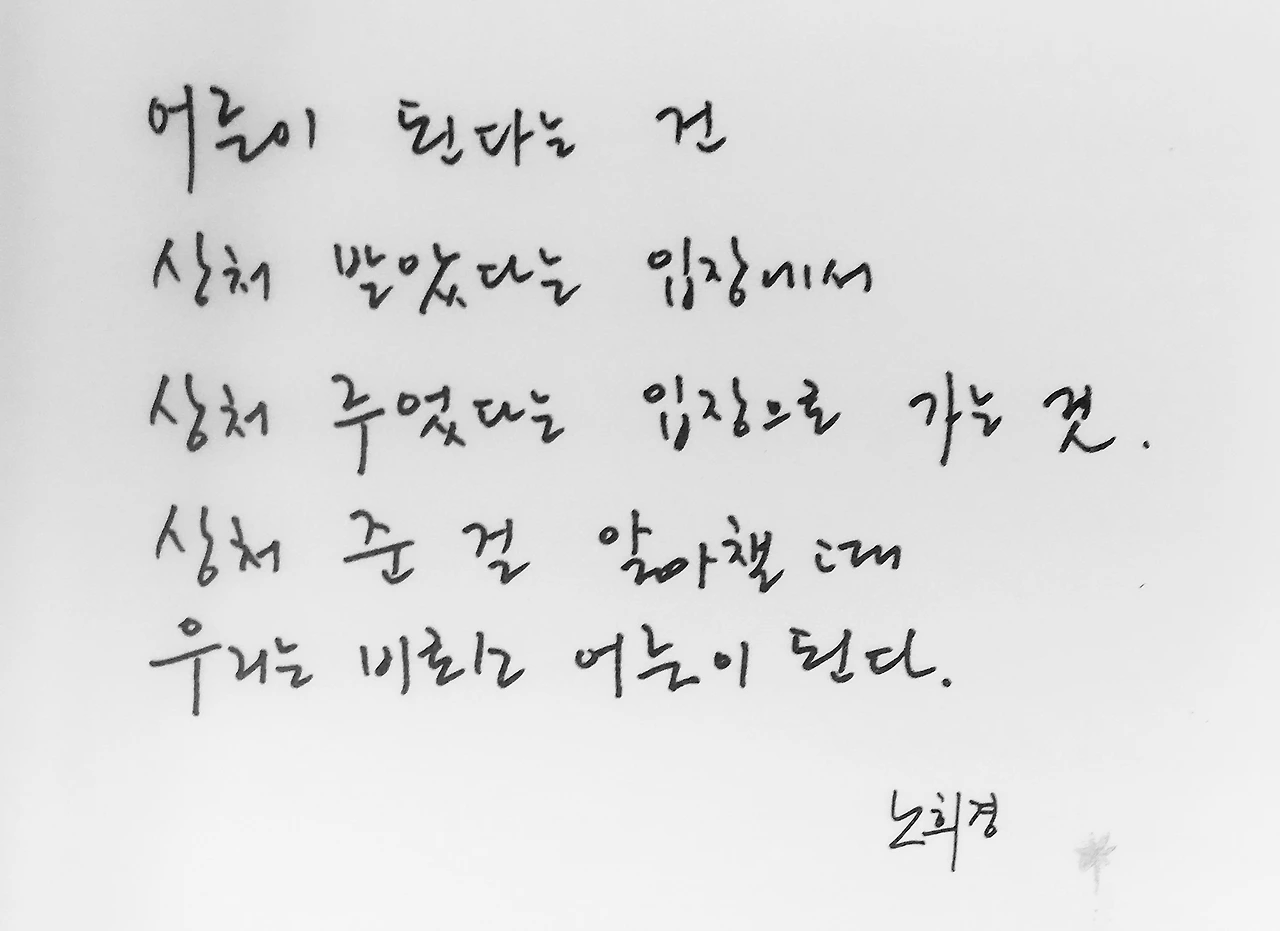 어른이 된다는 건
상처 받았다는 입장에서
상처 주었다는 입장으로 가는 것.
상처 준 걸 알아챌 때
우리는 비로소 어른이 된다.
노희경